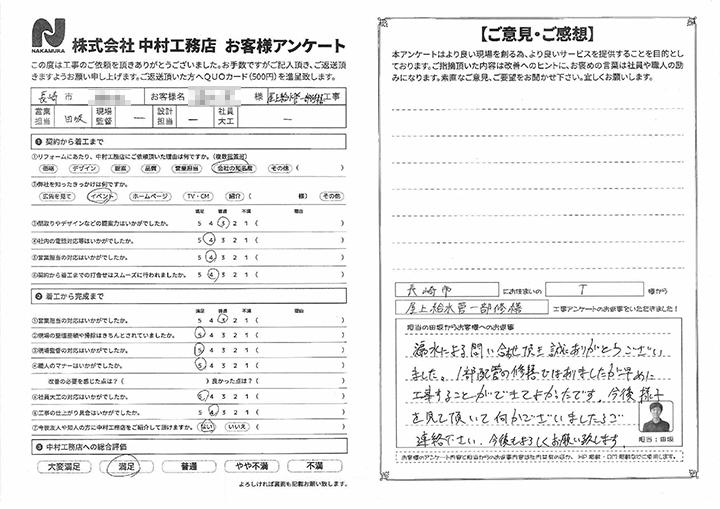 NAKAMURA
株式会社 中村工務店 お客様アンケート
この度は工事のご依頼を頂きありがとうございました。お手数ですがご記入頂き、ご返送頂
きますようお願い申し上げます。ご返送頂いた方へQUOカード(500円)を進呈致します。
長崎 市 お客様名 様 屋上給水管一部修繕 工事
営業担当 田坂 現場監督 ー 設計担当 ー 社員大工 ー
❶ 契約から着工まで
①リフォームにあたり、中村工務店にご依頼頂いた理由は何ですか。(複数回答可)
価格 デザイン 親直 品質 営業担当 会社の知名度 その他 ( )
②弊社を知ったきっかけは何ですか。
広告を見て イベント ホームページ TV・CM 紹介 ( 様) その他
満足 普通 不満 理由
③間取りやデザインなどの提案力はいかがでしたか。 5 4 3 2 1 ( )
④社内の電話対応等はいかがでしたか。 5 4 3 2 1 ( )
⑤営業担当の対応はいかがでしたか。 5 4 3 2 1 ( )
⑥契約から着工までの打合せはスムーズに行われましたか。 5 4 3 2 1 ( )
❷ 着工から完成まで
満足 普通 不満 理由
①営業担当の対応はいかがでしたか。 5 4 3 2 1 ( )
②現場の整理整頓や掃除はきちんとされていましたか。 5 4 3 2 1 ( )
③現場監督の対応はいかがでしたか。 5 4 3 2 1 ( )
④職人のマナーはいかがでしたか。 5 4 3 2 1 ( )
改善の必要を感じた点は?( ) 良かった点は?( )
⑤社員大工の対応はいかがでしたか。 5 4 3 2 1 ( )
⑥工事の仕上がり具合はいかがでしたか。 5 4 3 2 1 ( )
⑦今後友人や知人の方に中村工務店をご紹介して頂けますか。 はい いいえ ( )
❸ 中村工務店への総合評価
大変満足 満足 普通 やや不満 不満
よろしければ裏面も記載お願い致します。
【ご意見・ご感想】
本アンケートはより良い現場を創る為、より良いサービスを提供することを目的とし
ております。ご指摘頂いた内容は改善へのヒントに、お褒めの言葉は社員や職人の励
みになります。素直なご意見、ご要望をお聞かせ下さい。宜しくお願いします。
長崎市 にお住まいの T 様から
屋上給水管一部修繕 工事アンケートのお返事をいただきました!
担当の田坂からお客様へのお返事
漏水による問い合わせ頂き誠にありがとうござい
ました。1部配管の修繕ではありましたが早めに
工事することができてよかったです。今後様子
を見て頂いて何かございましたらご
連絡下さい。今後もよろしくお願い致します。
担当:田坂
お客様のアンケート内容と担当からのお返事内容は社内掲載のほか、HP掲載・DM掲載などに使用します。